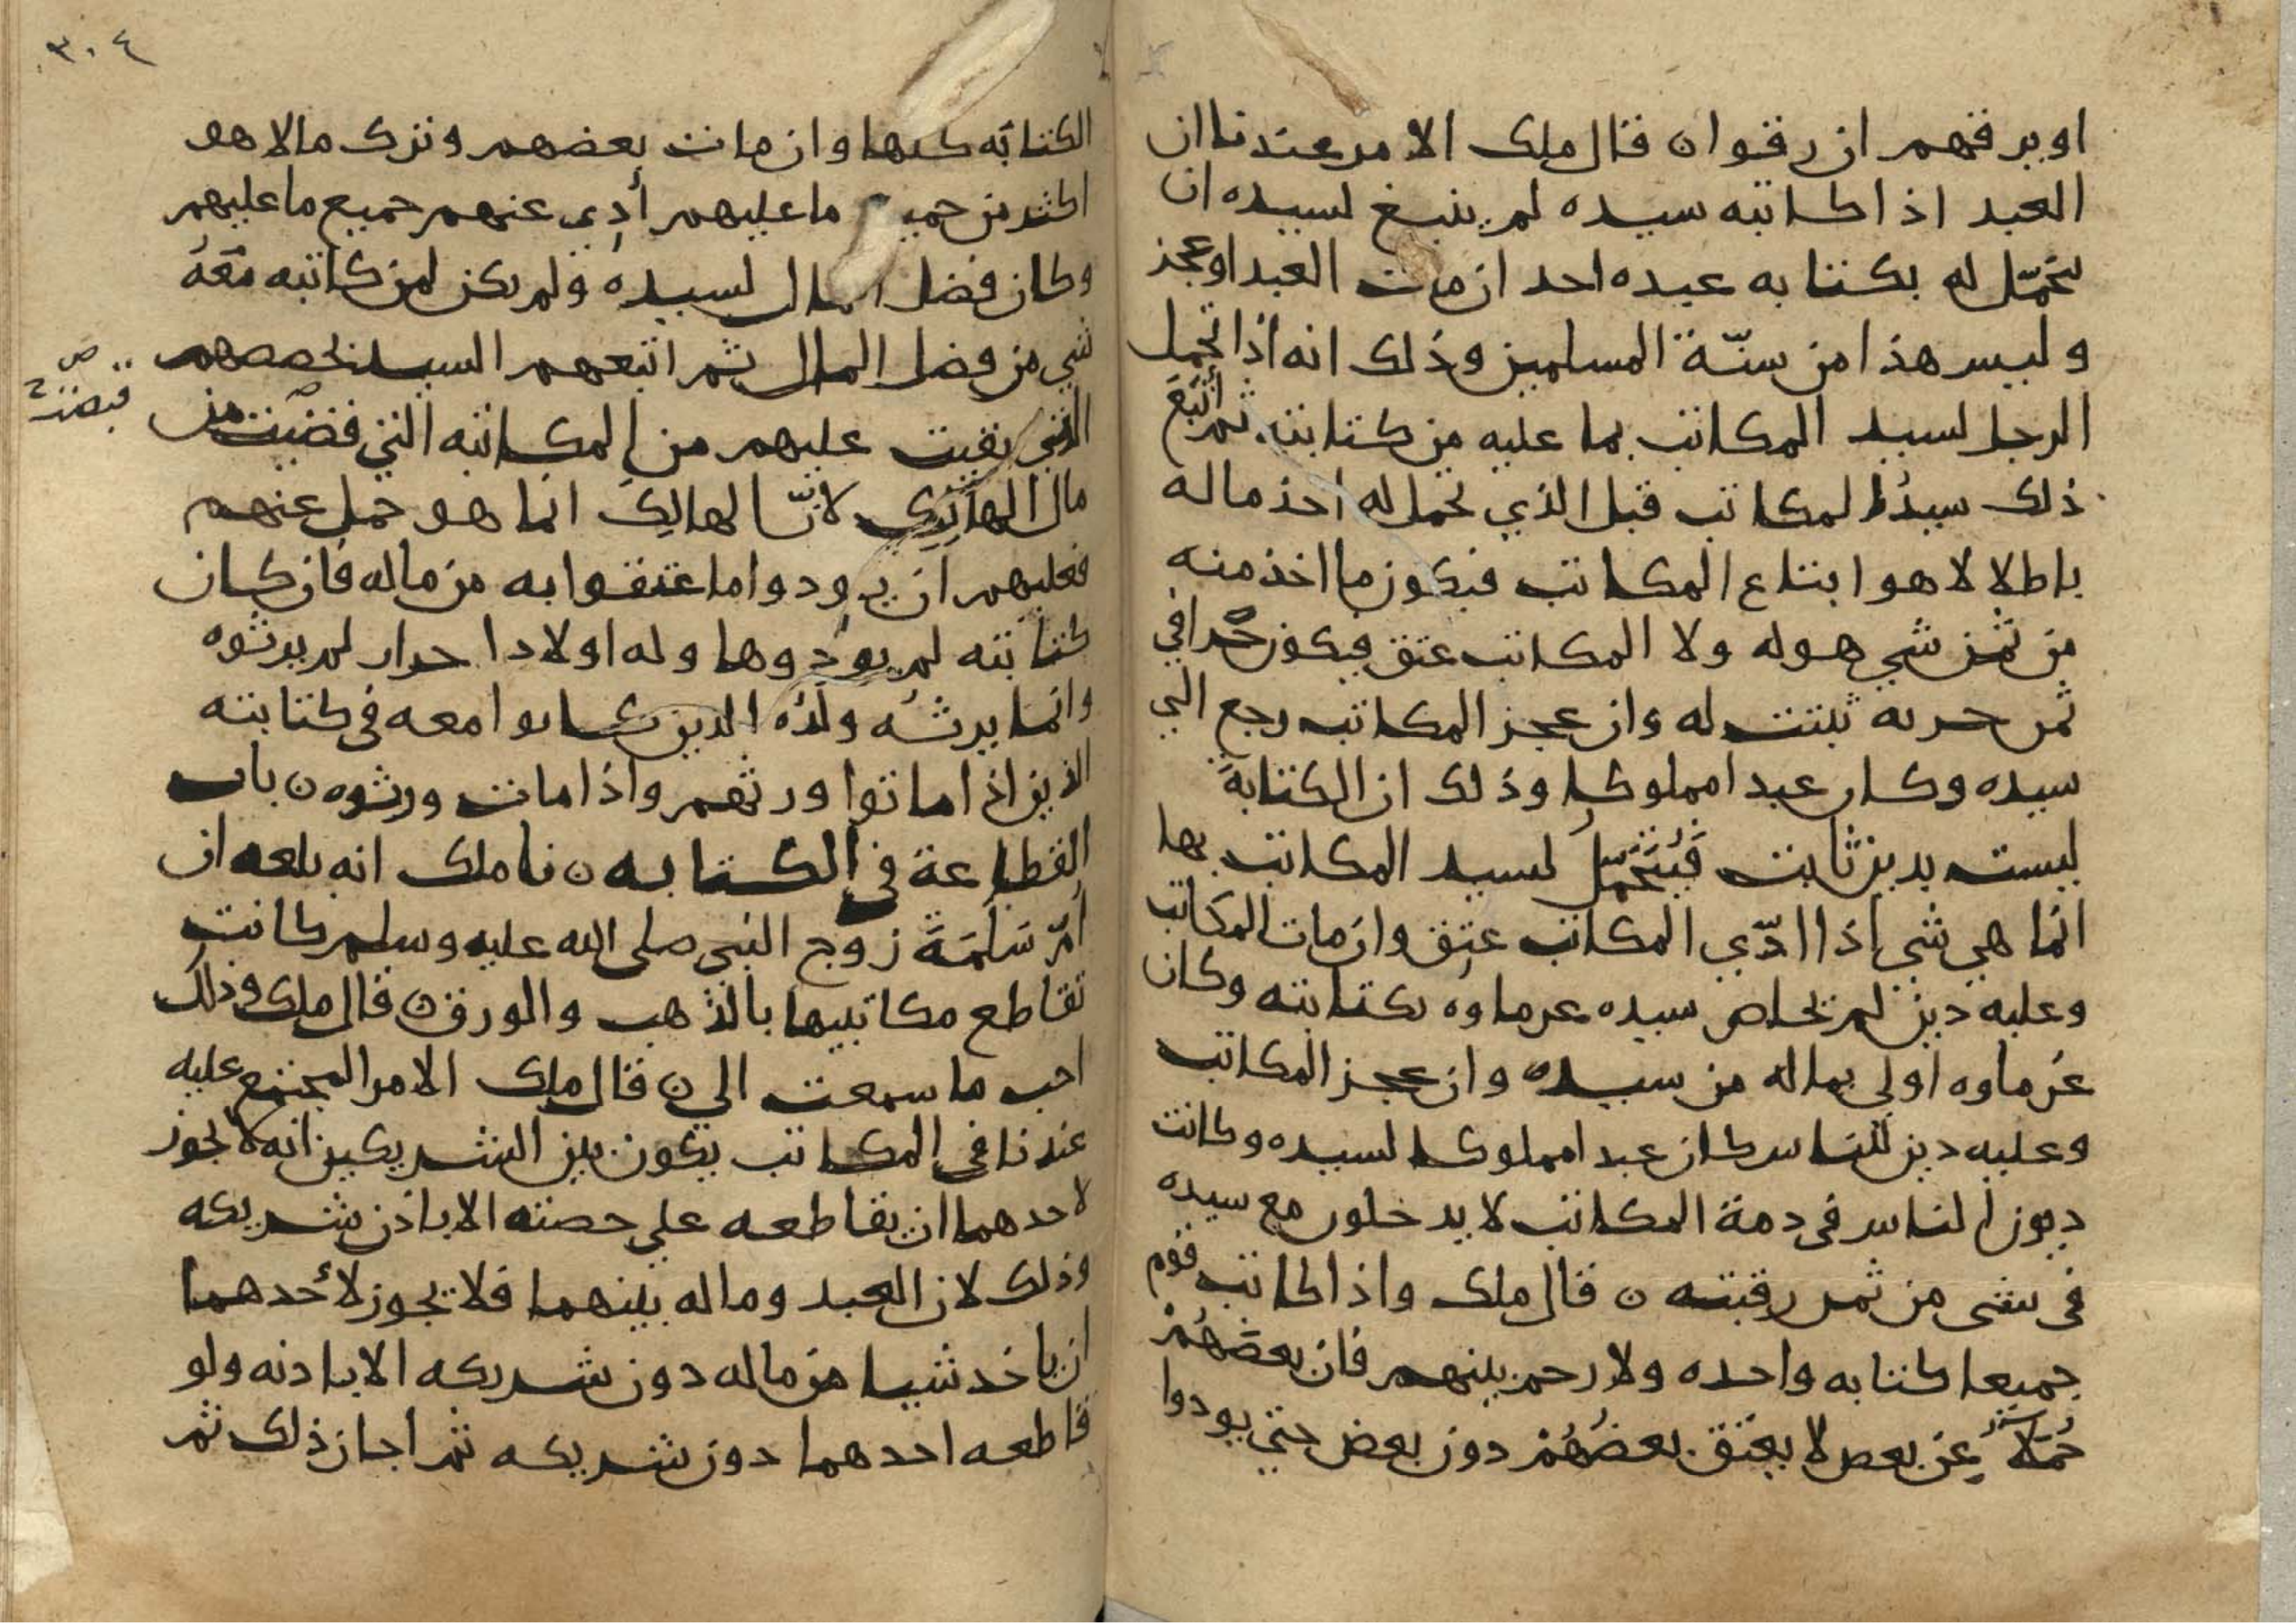 او يرقهم ان رقوا ن قال ملك الامر عندنا ان
العبد اذا كاتبه سيده لم ينبغ لسيده ان
يتحمّل له بكتابه عبده احد ان مات العبد او عجز
وليس هذا من سنّة المسلمين وذلك انه اذا تحمل
الرجل لسيد المكاتب بما عليه من كتابته ثم اتبع
ذلك سيدُ المكاتب قبل الذي تحمل له اخذ ماله
باطلا لا هو ابتاع المكاتب فيكون ما اخذ منه
من ثمن شي هو له ولا المكاتب عتق فيكون في
ثمن حرمه ثبتت له وان عجز المكاتب رجع الي
سيده وكان عبدا مملوكا وذلك ان الكتابةَ
ليست بدين ثابت فَيُتَحَمّلُ لسيد المكاتب بها
انما هي شي اذا ادّي المكاتب عتِق وان مات المكاتب
وعليه دين لم يحاص سيده غرماوه بكتابته وكان
غُرماوه اولي بماله من سيده وان عجز المكاتب
وعليه دين للناس كان عبدا مملوكا لسيده وكانت
ديون الناس في ذمة المكاتب لا يدخلون مع سيده
في شي من ثمن رقبته ن قال ملك واذا كاتب قوم
جميعا كتابه واحده ولا رحم بينهم فان بعضَهُمْ
حُمَلاَءُ عن بعض لا يعتق بعضُهُمْ دون بعض حتي يودوا
٣٠٤
الكتابه كلها وان مات بعضهم وترك مالا هو
اكثر من جميع ما عليهم أُدِي عنهم جميع ما عليهم
وكان فضل المال لسيده ولم يكن لمن كاتبه مَعَهُ
شي من فضل المال ثم اتبعهم السيد بحصصهم
التي بقيت عليهم من المكاتبه التي قضيت من
مال الهالِكِ لانّ الهالِكَ انما هو حمل عنهم
فعليهم ان يودوا ما عتقوا به من ماله فان كان
كتابته لم يودوها وله اولاد احرار لم يرثوه
وانما يرثُه ولَدُه الذين كانوا معه في كتابته
الذين اذا ماتوا ورثهم واذا مات ورثوه ن باب
القطاعة في الكتابه ن نا ملك انه بلغه ان
أمّ سَلَمَةَ زوج النبي صلى الله عليه وسلم كانت
تقاطع مكاتبيها بالذهب والورق ن قال ملك وذلك
احب ما سمعت الي ن قال ملك الامر المجتمع عليه
عندنا في المكاتب يكون بين الشريكين انه لا يجوز
لاحدهما ان يقاطعه علي حصته الا باذن شريكه
وذلك لان العبد وماله بينهما فلا يجوز لأحدهما
ان ياخذ شيا من ماله دون شريكه الا باذنه ولو
قاطعه احدهما دون شريكه ثم اجاز ذلك ثم